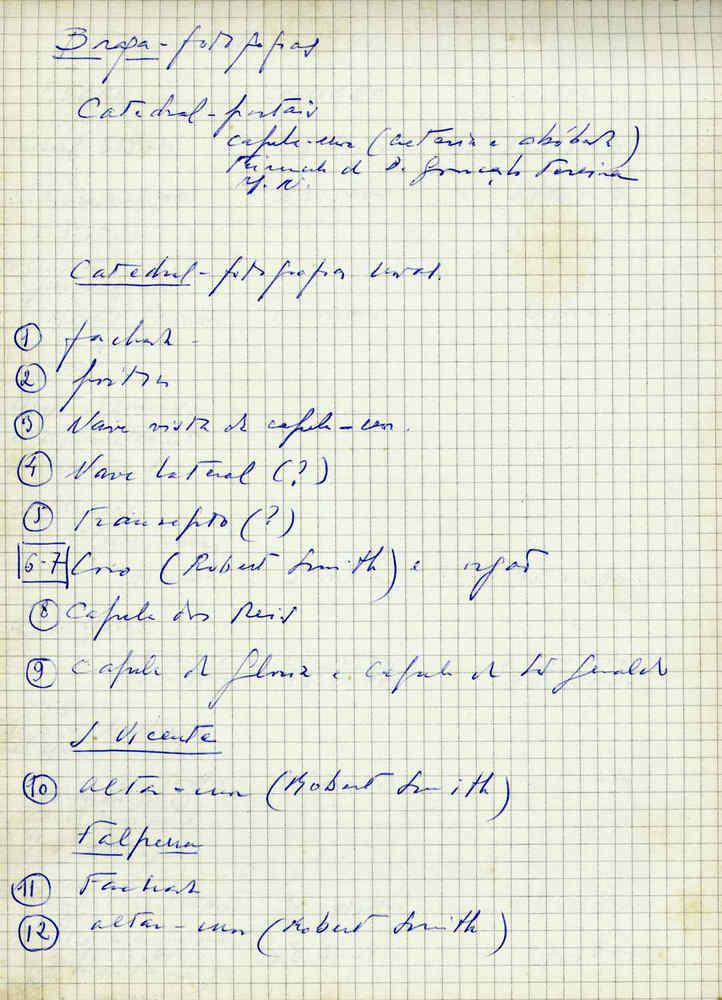 Braga - fotografias
Catedral - portais
capela-mor (exterior e abóbada)
Túmulo de D. Gonçalo Pereira
Catedral - fotografias
① fachada -
②
③ Nave vista da capela-mor.
④ Nave lateral (?)
⑤ Transepto (?)
6-7 Coro (Robert Smith) e orgão
⑧ Capela dos Reis
⑨ Capela da Glória e Capela de S. Geraldo
S. Vicente
⑩ altar-mor (Robert Smith)
Falperra
⑪ Fachada
⑫ altar-mor (Robert Smith)